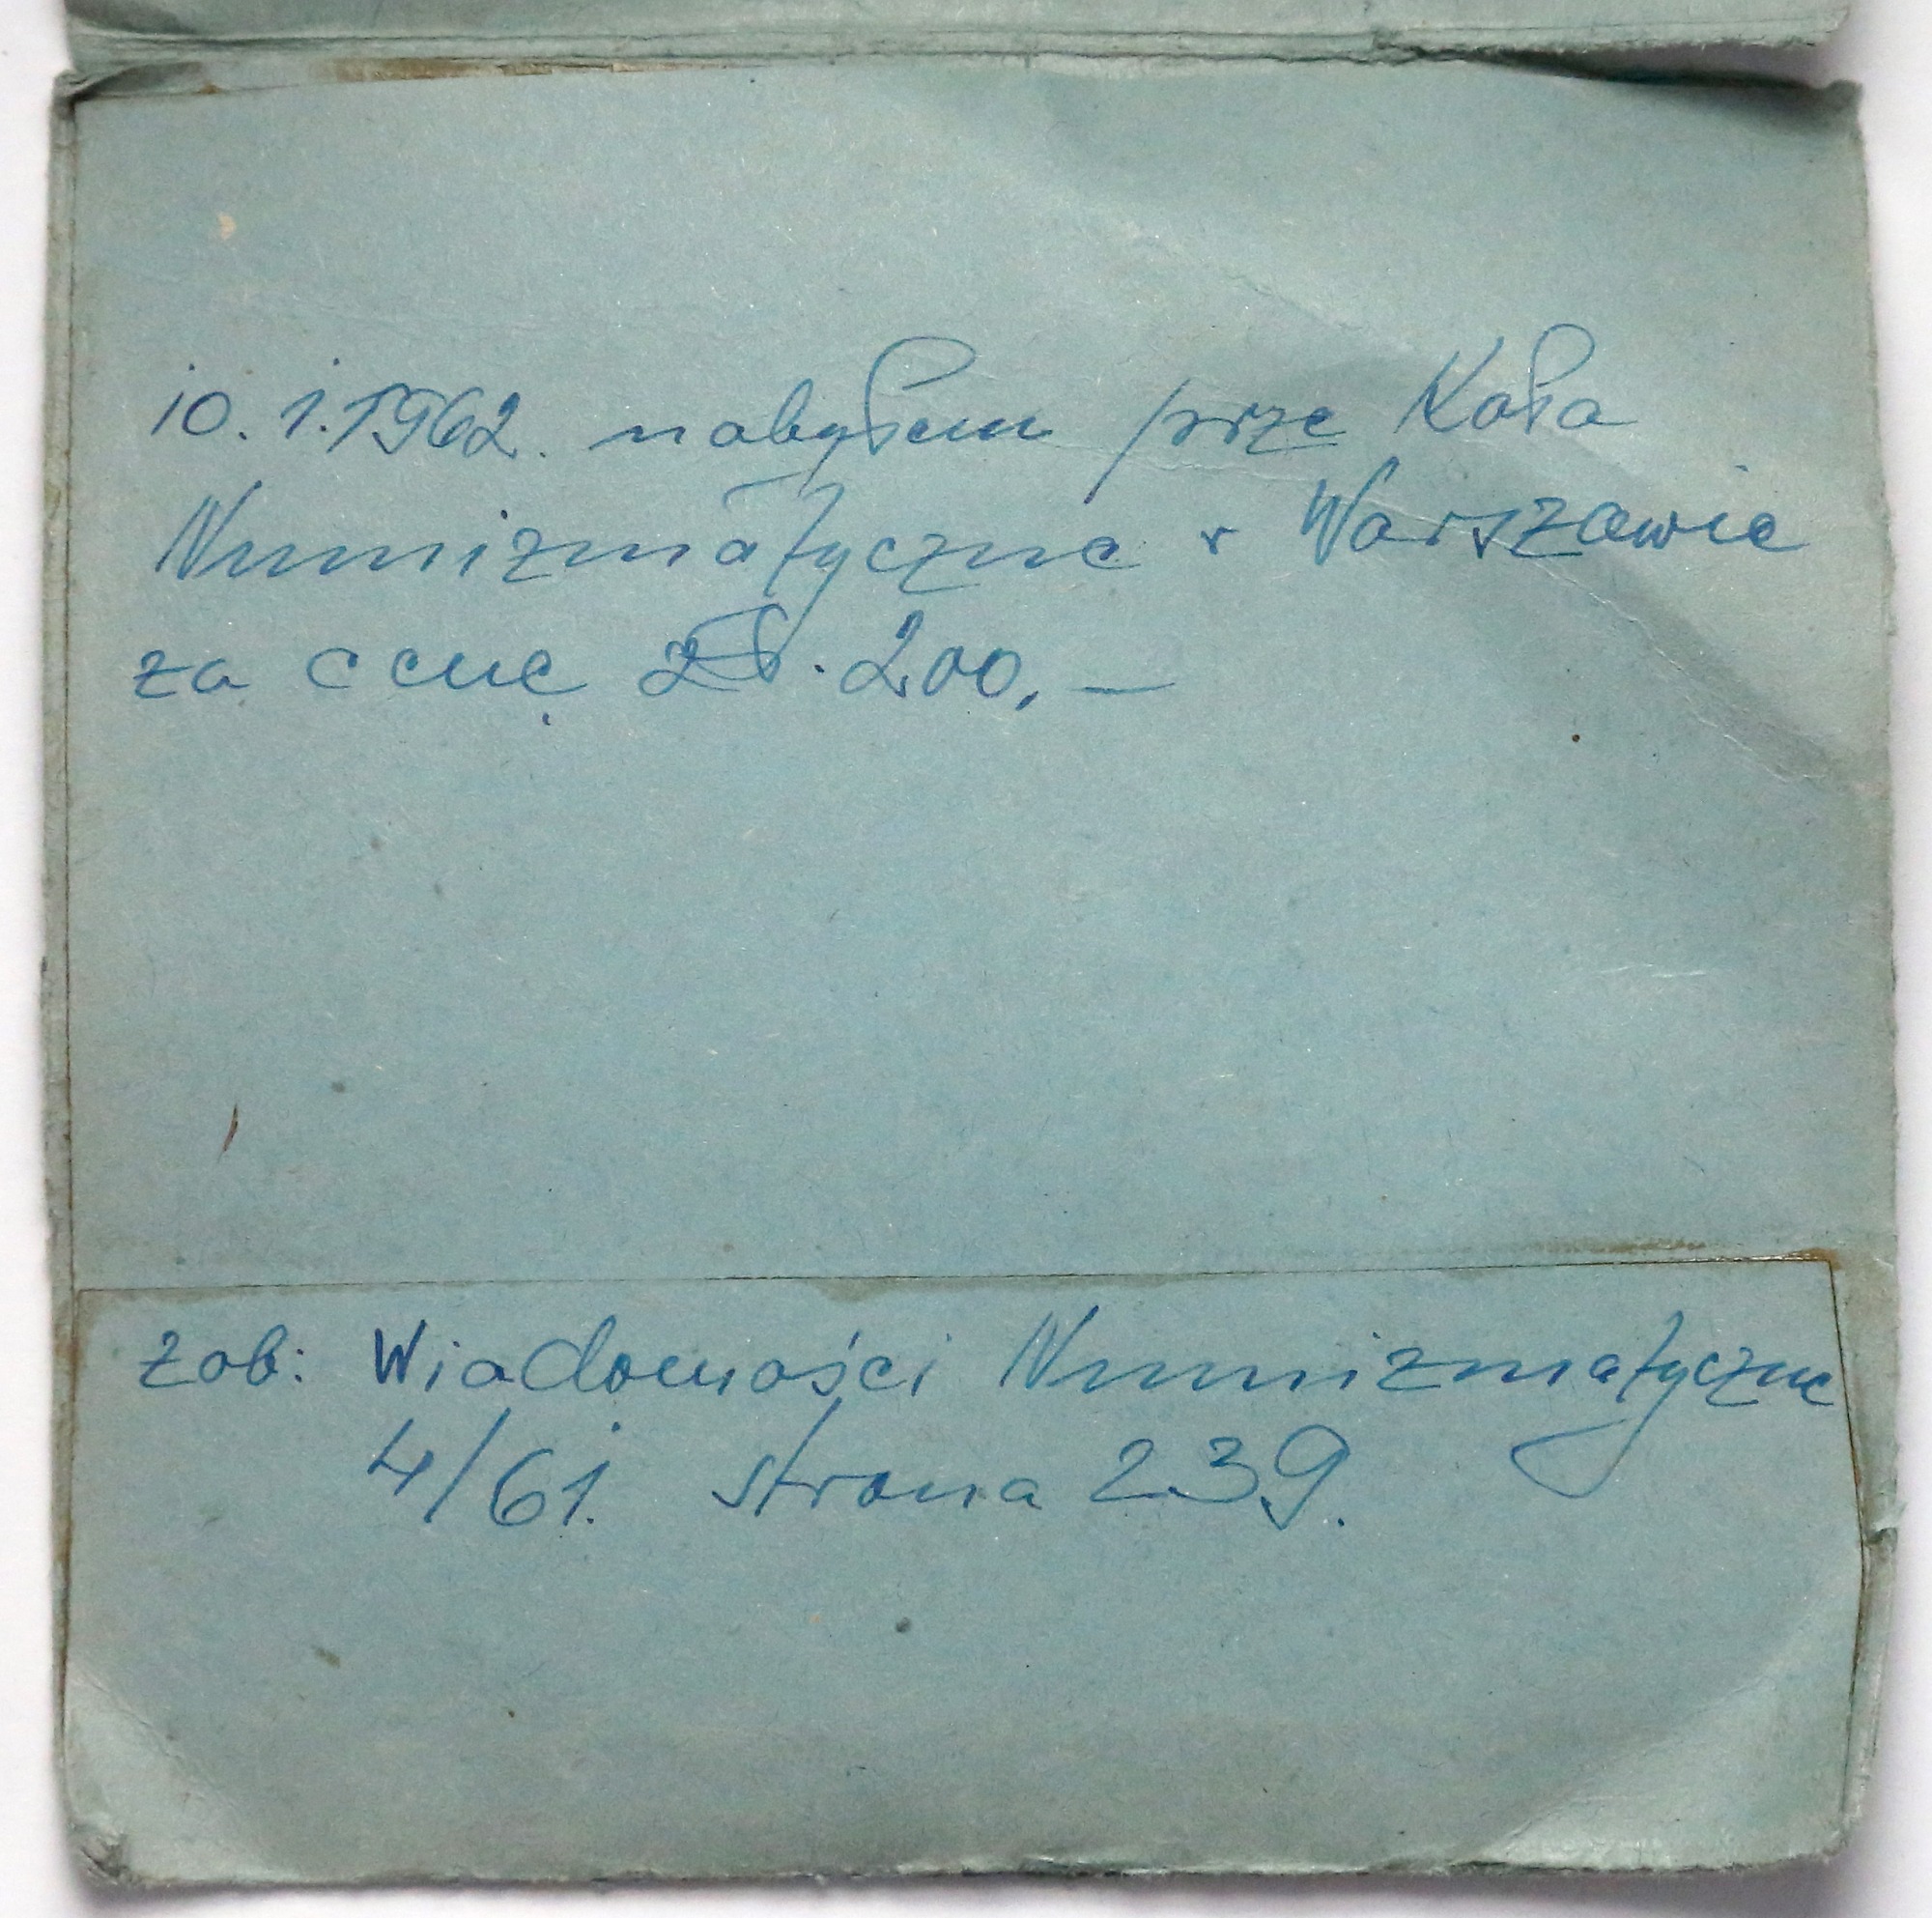 10.1.1962. nabyłem prze Koła
Numizmatyczne w Warszawie
za cenę zł. 200,—
Zob: Wiadomości Numizmatyczne
4/61. strona 239.